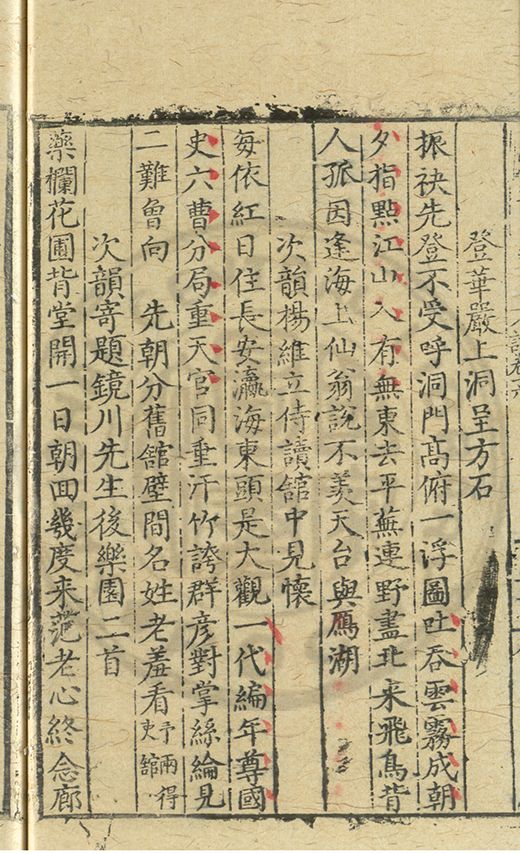 登華嚴上洞呈方石
振袂先登不受呼洞門高俯一浮圖吐吞雲霧成朝
夕指點江山入有無東去平蕪連野盡北来飛鳥背
人孤因逢海上仙翁說不羡天台與鴈湖
次韻楊維立侍讀舘中見懷
每依紅日住長安瀛海東頭是大觀一代編年尊國
史六曹分局重天官同垂汗竹誇群彦對掌絲綸見
二難曾向　先朝分舊舘壁間名姓老羞看予兩得史舘
次韻寄題鏡川先生後樂園二首
藥欄花圃背堂開一日朝回幾度来范老心終念廊